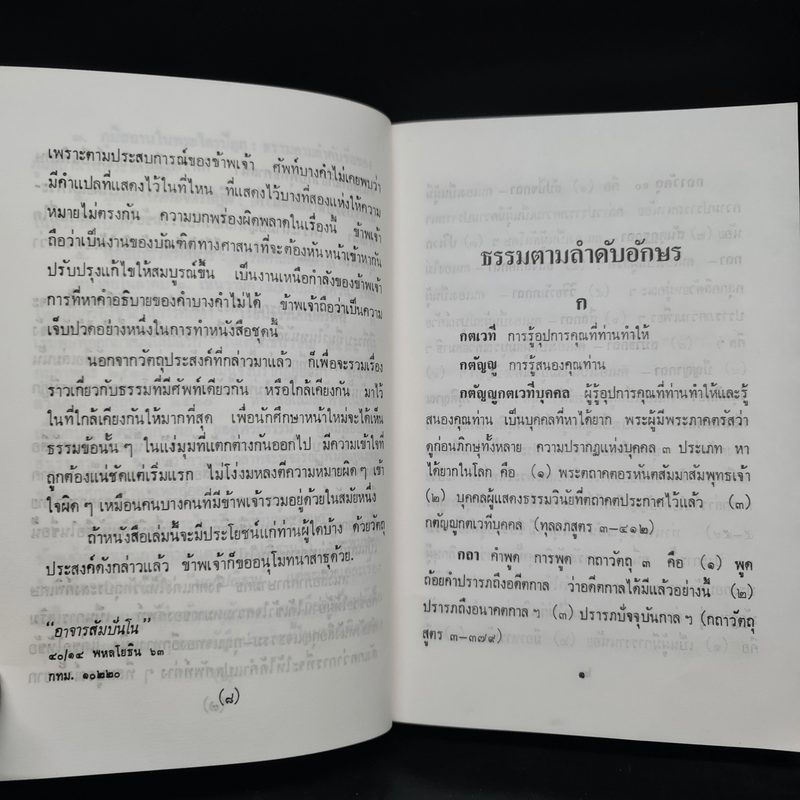 เพราะตามประสบการณ์ของข้าพเจ้า ศัพท์บางคำไม่เคยพบว่า
มีคำแปลที่แสดงไว้ในที่ไหน ที่แสดงไว้บางที่สองแห่งให้ความ
หมายไม่ตรงกัน ความบกพร่องผิดพลาดในเรื่องนี้ ข้าพเจ้า
ถือว่าเป็นงานของบัณฑิตทางศาสนาที่จะต้องหันหน้าเข้าหากัน
ปรับปรุงแก้ไขให้สมบูรณ์ขึ้น เป็นงานเหนือกำลังของข้าพเจ้า
การที่หาคำอธิบายของคำบางคำไม่ได้ ข้าพเจ้าถือว่าเป็นความ
เจ็บปวดอย่างหนึ่งในการทำหนังสือชุดนี้
นอกจากวัตถุประสงค์ที่กล่าวมาแล้ว ก็เพื่อจะรวมเรื่อง
ราวเกี่ยวกับธรรมที่มีศัพท์เดียวกัน หรือใกล้เคียงกัน มาไว้
ในที่ใกล้เคียงกันให้มากที่สุด เพื่อนักศึกษาหน้าใหม่จะได้เห็น
ธรรมข้อนั้น ๆ ในแง่มุมที่แตกต่างกันออกไป มีความเข้าใจที่
ถูกต้องแน่ชัดแต่เริ่มแรก ไม่โง่งมหลงตีความหมายผิด ๆ เข้า
ใจผิด ๆ เหมือนคนบางคนที่มีข้าพเจ้ารวมอยู่ด้วยในสมัยหนึ่ง
ถ้าหนังสือเล่มนี้จะมีประโยชน์แก่ท่านผู้ใดบ้าง ด้วยวัตถุ
ประสงค์ดังกล่าวแล้ว ข้าพเจ้าก็ขออนุโมทนาสาธุด้วย.
"อาจารสัมปันโน"
๔๐/๑๔ พหลโยธิน ๖๓
กทม. ๑๐๒๒๐
(๘)
ธรรมตามลำดับอักษร
ก
กตเวที การรู้อุปการคุณที่ท่านทำให้
กตัญญู การรู้สนองคุณท่าน
กตัญญูกตเวทีบุคคล ผู้รู้อุปการคุณที่ท่านทำให้และรู้
สนองคุณท่าน เป็นบุคคลที่หาได้ยาก พระผู้มีพระภาคตรัสว่า
ดูก่อนภิกษุทั้งหลาย ความปรากฏแห่งบุคคล ๓ ประเภท หา
ได้ยากในโลก คือ (๑) พระตถาคตอรหันตสัมมาสัมพุทธเจ้า
(๒) บุคคลผู้แสดงธรรมวินัยที่ตถาคตประกาศไว้แล้ว (๓)
กตัญญูกตเวทีบุคคล (ทุลลภสูตร ๓-๔๑๒)
กถา คำพูด การพูด กถาวัตถุ ๓ คือ (๑) พูด
ถ้อยคำปรารภถึงอดีตกาล ว่าอดีตกาลได้มีแล้วอย่างนี้ (๒)
ปรารภถึงอนาคตกาล ฯ (๓) ปรารภปัจจุบันกาล ฯ (กถาวัตถุ
สูตร ๓-๓๗๙)
๑